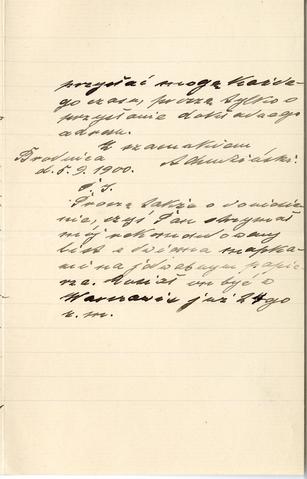 przysłać mogę każde-
go czasu, proszę tylko o
przysłanie dokładnego
adresu.
Z szacunkiem
Brodnica
d. 5. 9. 1900.
Proszę także o doniesie-
nie, czyś Pan otrzymał
mój rekomendowany
list z dwoma mapka-
mi na jedwabnym papie-
rze. Musiał on być w
Warszawie już 24go
z. m.